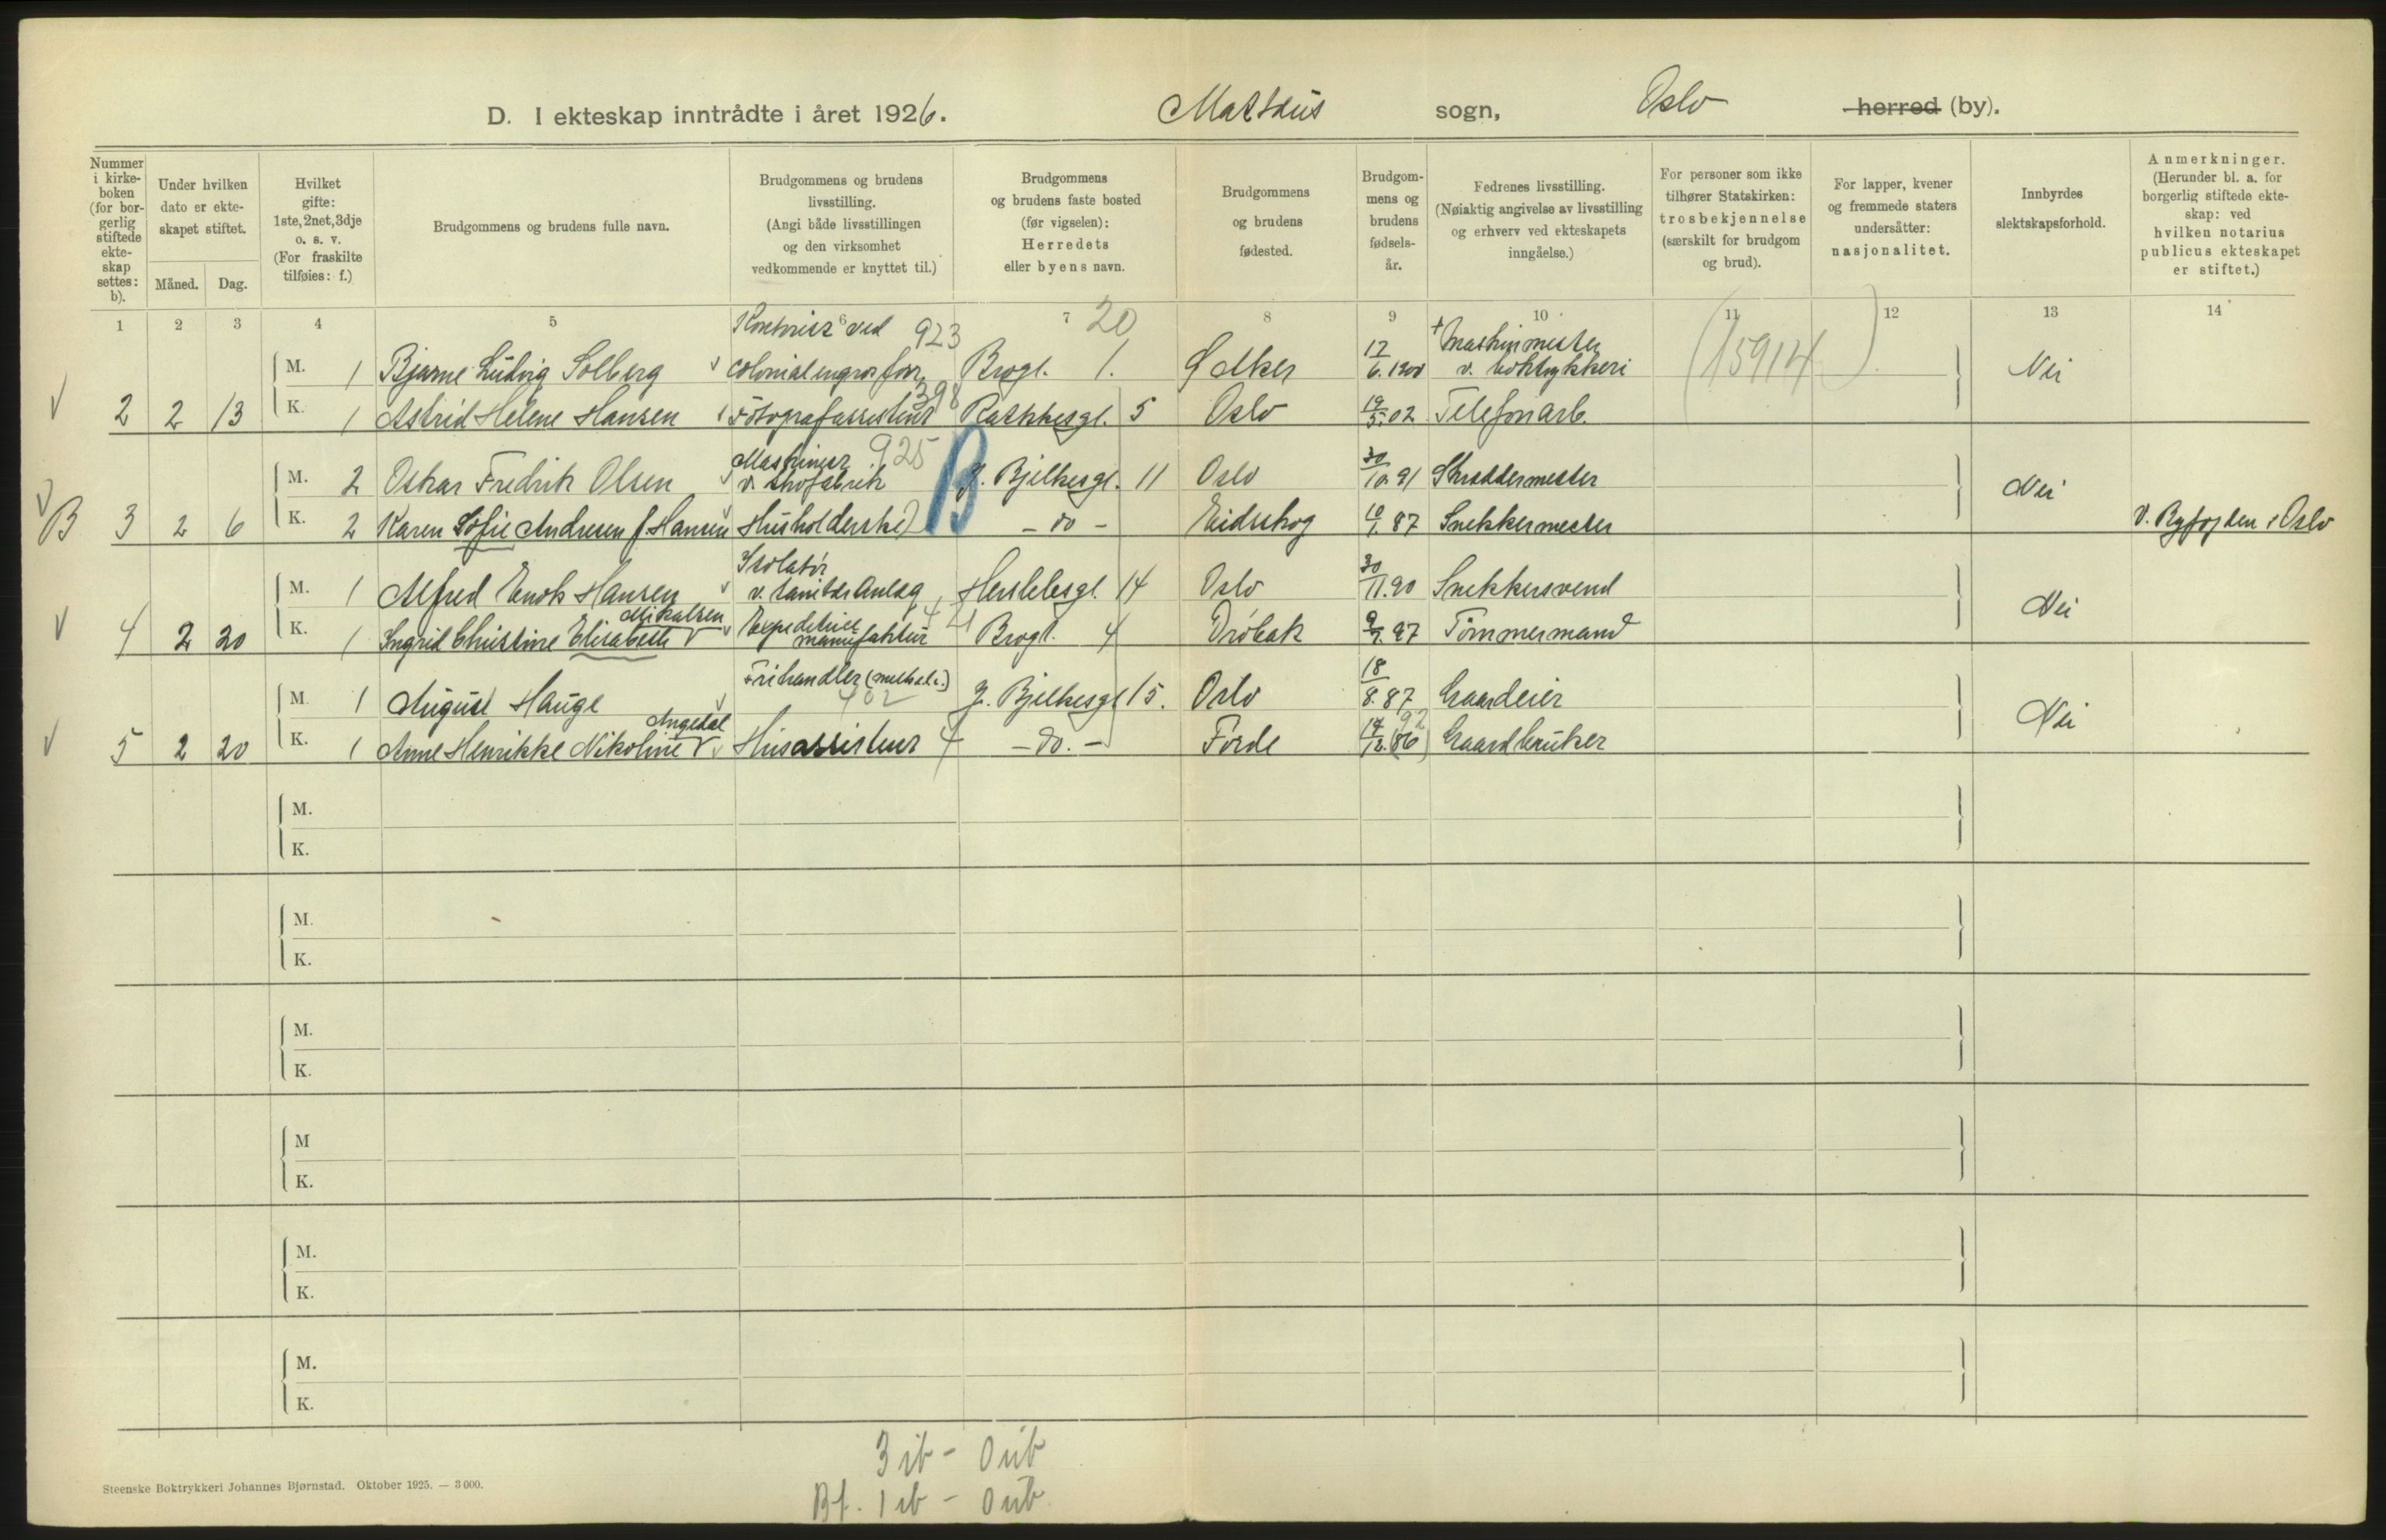 D. I ekteskap inntrådte i året 1926. Mattæus sogn, Oslo herred (by).
Nummer i kirke-boken (for bor-gerlig stiftede ekte-skap settes: b).
Under hvilken dato er ekte-skapet stiftet.
Måned. Dag.
Hvilket gifte: 1ste, 2net, 3dje o. s. v. (For fraskilte tilføies: f.)
Brudgommens og brudens fulle navn.
Brudgommens og brudens livsstilling. (Angi både livsstillingen og den virksomhet vedkommende er knyttet til.)
Brudgommens og brudens faste bosted (før vigselen): Herredets eller byens navn.
Brudgommens og brudens fødested.
Brudgom-mens og brudens fødsels-år.
Fedrenes livsstilling. (Nøiaktig angivelse av livsstilling og erhverv ved ekteskapets inngåelse.)
For personer som ikke tilhører Statskirken: trosbekjennelse (særskilt for brudgom og brud).
For lapper, kvener og fremmede staters undersåtter: nasjonalitet.
Innbyrdes slektskapsforhold.
Anmerkninger. (Herunder bl. a. for borgerlig stiftede ekte-skap: ved hvilken notarius publicus ekteskapet er stiftet.)
1 2 3 4 5 6 7 8 9 10 11 12 13 14
Kontorist ved 923 20
M. 1 Bjarne Ludvig Solberg v colonialengrosforr. Brogt. 1. Ø Aker 17/6.1900 + Maskinmester v. boktrykkeri (15914) Nei
398
v 2 2 13 K. 1 Astrid Helene Hansen Fotografassistent Rathkesgt. 5 Oslo 19/5.02 Telefonarb.
M. 2 Oskar Fredrik Olsen Maskinist v. skofabrik 925 B J. Bjelkesgt. 11 Oslo 30/10.91 Skræddermester Nei
v B 3 2 6 K. 2 Karen Sofie Andresen f. Hansen Husholderske - do - Eidskog 10/1.87 Snekkermester V. Byfogden i Oslo
M. 1 Alfred Enok Hansen v Isolatør v. sanitæranlæg Herslebsgt. 14 Oslo 30/11.90 Snekkersvend Nei
Mikalsen
v 4 2 20 K. 1 Ingrid Christine Elisabeth v Expeditrice manufaktur 421 Brogt. 4 Drøbak 9/9.97 Tømmermand
M. 1 August Hauge v Frihandler (melkeh.) 402 J. Bjelkesgt 15. Oslo 18/8.87 Gaardeier Nei
Angedal
v 5 2 20 K. 1 Anne Henrikke Nikoline v Husassistent 4 - do. - Førde 14/12.(86) 92 Gaardbruker
M.
K.
M.
K.
M.
K.
M
K.
M.
K.
M.
K.
3 ib - 0 uib
Bf. 1 ib - 0 uib
Steenske Boktrykkeri Johannes Bjørnstad. Oktober 1925. — 3 000.